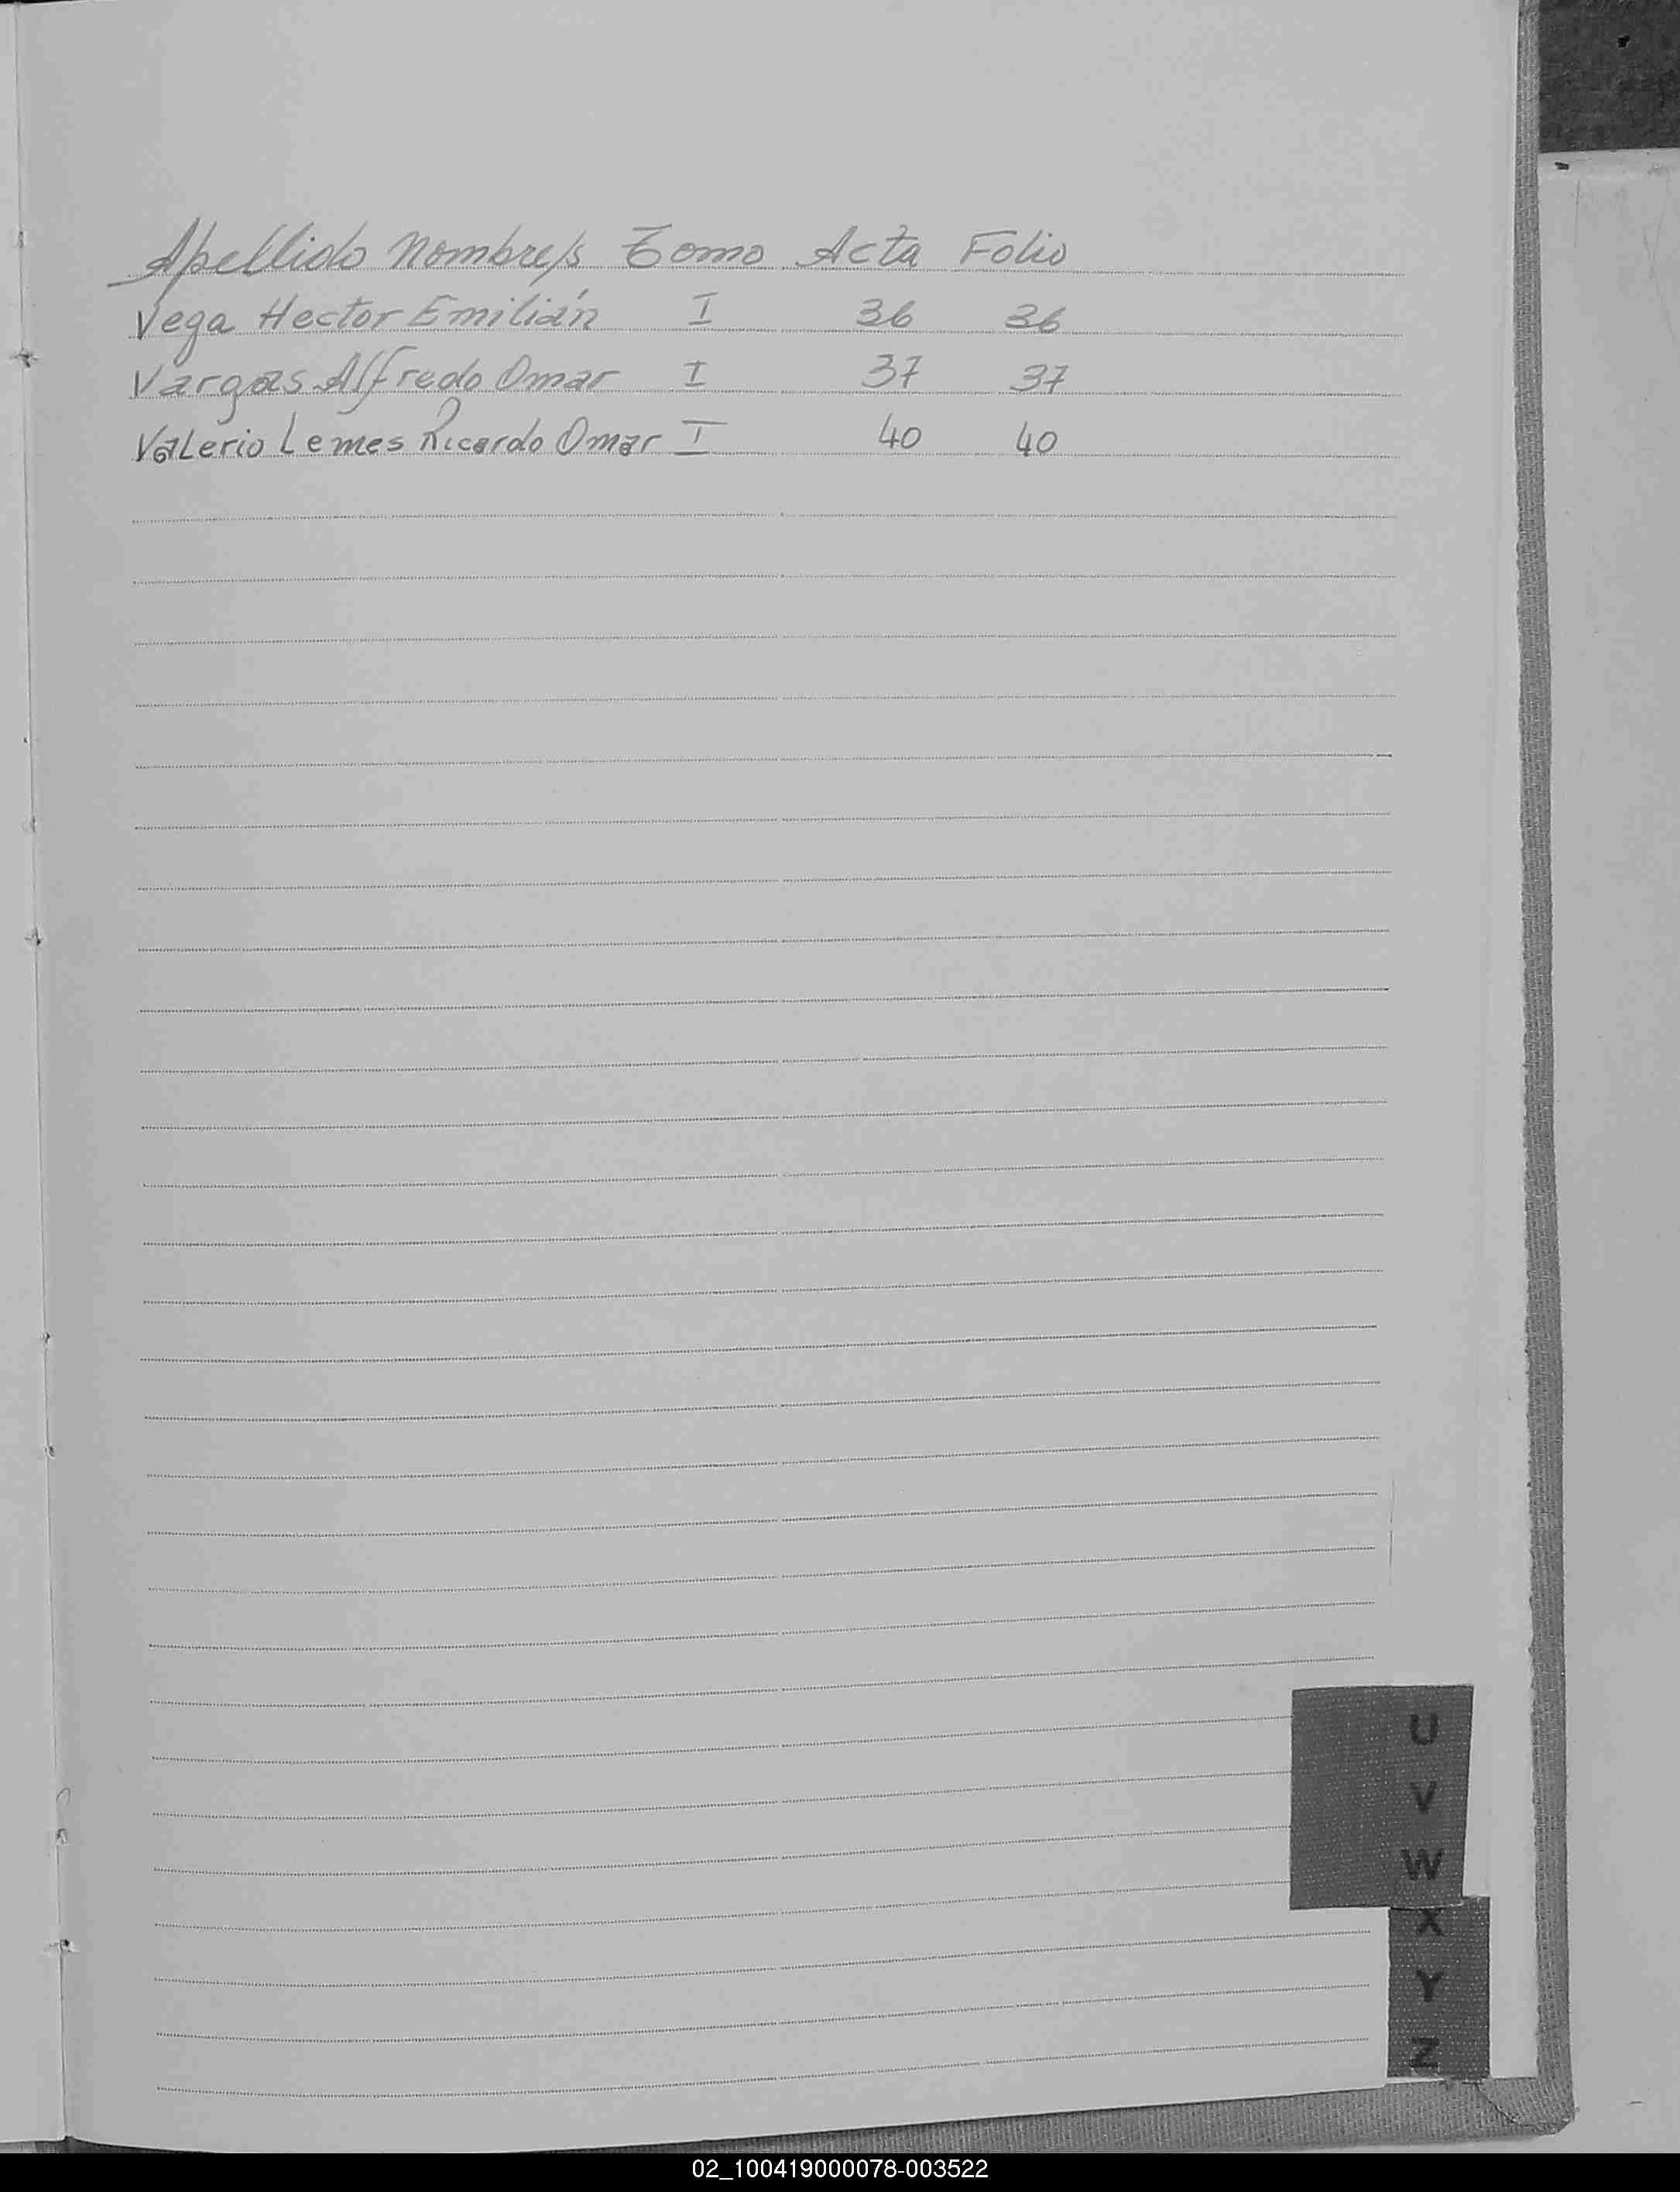 Apellido Nombre/s Tomo Acta Folio
Vega Hector Emilián I 36 36
Vargas Alfredo Omar I 37 37
Valerio Lemes Ricardo Omar I 40 40
U
V
W
X
Y
Z
02_100419000078-003522